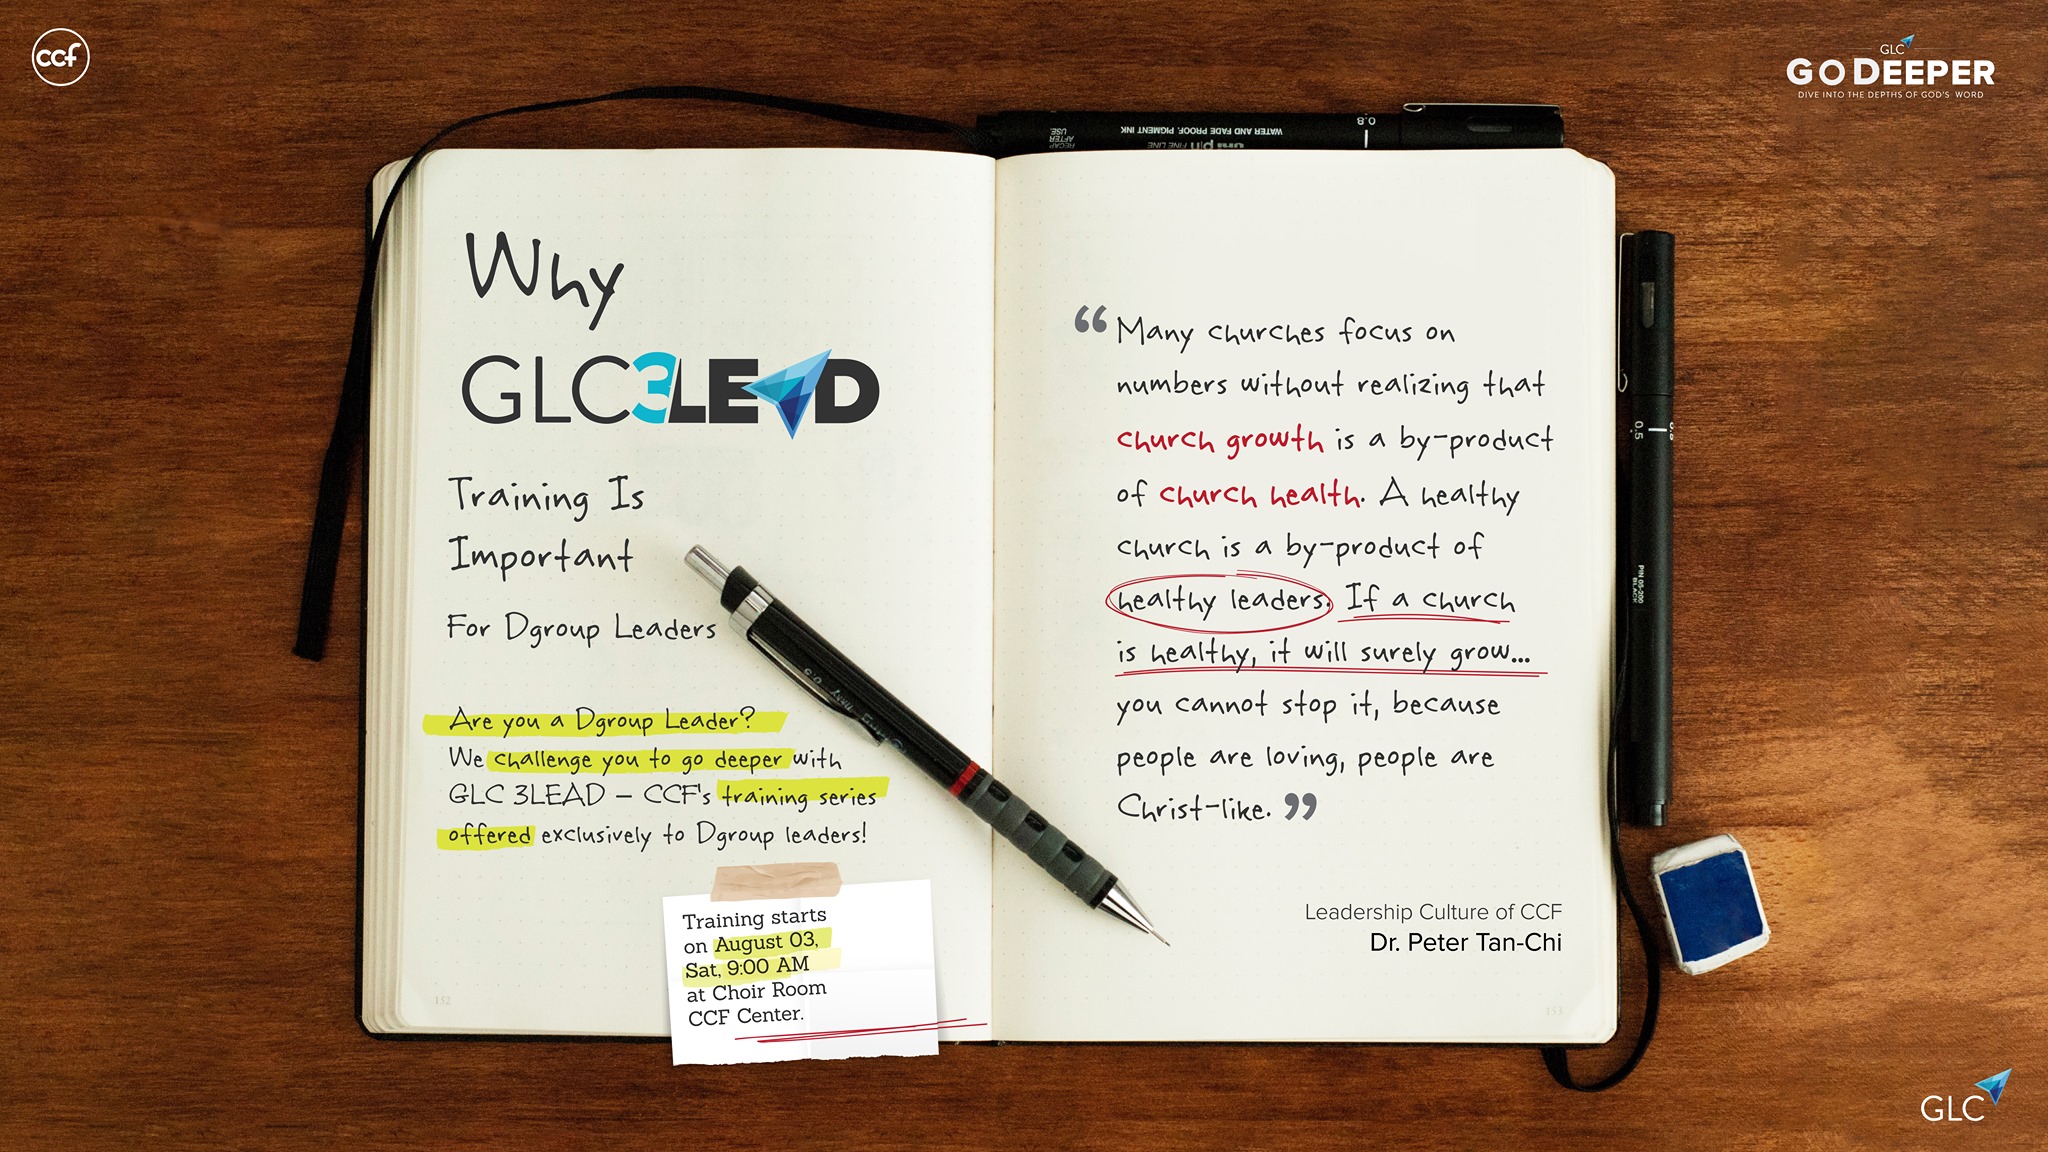 ccf
GLC
GO DEEPER
DIVE INTO THE DEPTHS OF GOD'S WORD
WATER AND FADE PROOF, PIGMENT INK
uni pin FINE LINE
RECAP
AFTER
USE.
0.8
Why
GLC3LEAD
Training Is
Important
For Dgroup Leaders
Are you a Dgroup Leader?
We challenge you to go deeper with
GLC 3LEAD – CCF's training series
offered exclusively to Dgroup leaders!
Training starts
on August 03,
Sat, 9:00 AM
at Choir Room
CCF Center.
152
“Many churches focus on
numbers without realizing that
church growth is a by-product
of church health. A healthy
church is a by-product of
healthy leaders. If a church
is healthy, it will surely grow...
you cannot stop it, because
people are loving, people are
Christ-like.”
Leadership Culture of CCF
Dr. Peter Tan-Chi
153
0.5
PIN 05-200
BLACK
GLC